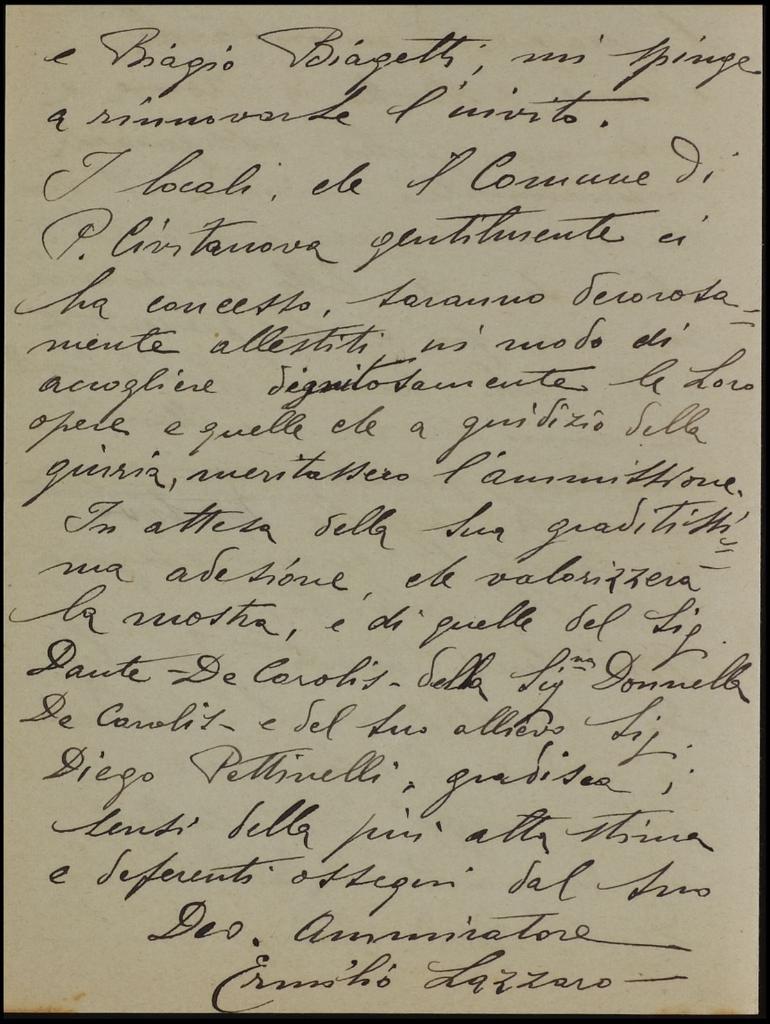 e Biagio Biagetti, mi spinge
a rinnovarle l'invito.
I locali, che il Comune di
P. Civitanova gentilmente ci
ha concesso, saranno decorosa-
mente allestiti, in modo di
accogliere dignitosamente le Loro
opere e quelle che a giudizio della
giuria, meritassero l'ammissione.
In attesa della Sua graditissi-
ma adesione, che valorizzerà
la mostra, e di quelle del Sig.
Dante De Carolis - della Signa Donnella
De Carolis - e del suo allievo Sig.
Diego Pettinelli, gradisca i
sensi della più alta stima
e deferenti ossequi dal suo
Dev. Ammiratore
Ermilio Lazzaro